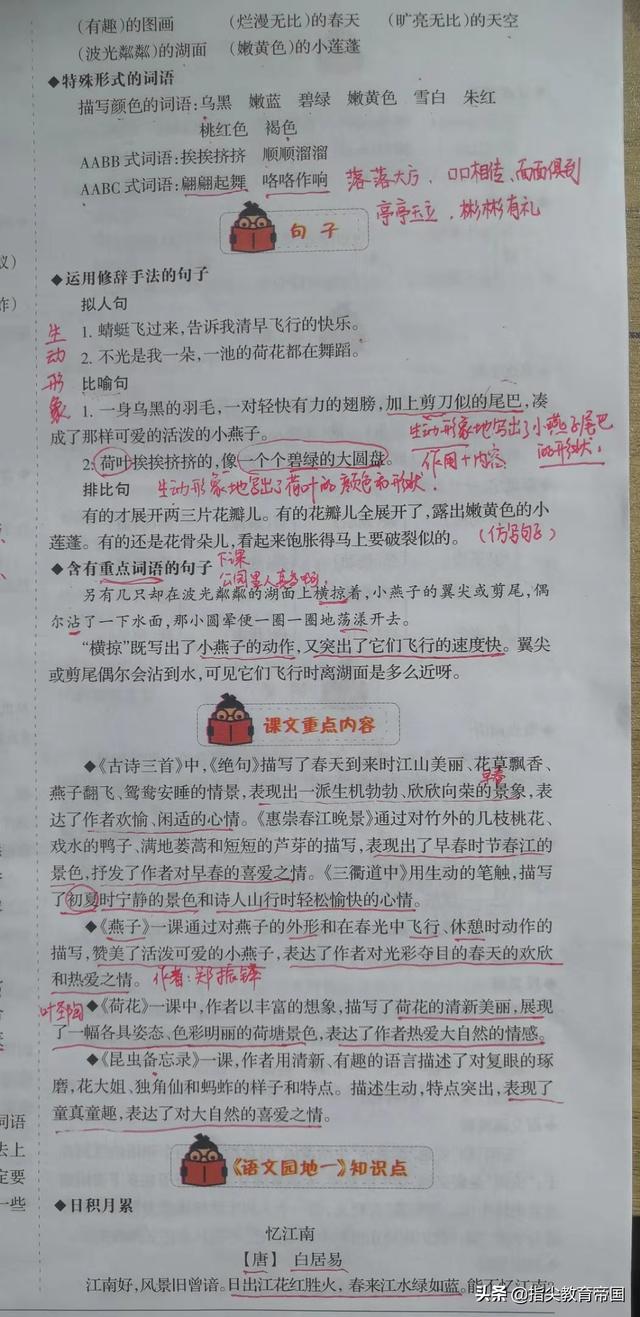 (有趣)的图画 (烂漫无比)的春天 (旷亮无比)的天空
(波光粼粼)的湖面 (嫩黄色)的小莲蓬
◆特殊形式的词语
描写颜色的词语:乌黑 嫩蓝 碧绿 嫩黄色 雪白 朱红
桃红色 褐色
AABB式词语:挨挨挤挤 顺顺溜溜
AABC式词语:翩翩起舞 咯咯作响 落落大方、口口相传、面面俱到
亭亭玉立、彬彬有礼
句子
◆运用修辞手法的句子
拟人句
生动形象
1. 蜻蜓飞过来,告诉我清早飞行的快乐。
2. 不光是我一朵,一池的荷花都在舞蹈。
比喻句
1. 一身乌黑的羽毛,一对轻快有力的翅膀,加上剪刀似的尾巴,凑
成了那样可爱的活泼的小燕子。
生动形象地写出了小燕子尾巴
的形状!
2. 荷叶挨挨挤挤的,像一个个碧绿的大圆盘。
作用+内容
排比句 生动形象地写出了荷叶的颜色和形状!
有的才展开两三片花瓣儿。有的花瓣儿全展开了,露出嫩黄色的小
莲蓬。有的还是花骨朵儿,看起来饱胀得马上要破裂似的。(仿写句子)
◆含有重点词语的句子
下课
公园里人真多啊
另有几只却在波光粼粼的湖面上横掠着,小燕子的翼尖或剪尾,偶
尔沾了一下水面,那小圆晕便一圈一圈地荡漾开去。
“横掠”既写出了小燕子的动作,又突出了它们飞行的速度快。翼尖
或剪尾偶尔会沾到水,可见它们飞行时离湖面是多么近呀。
课文重点内容
◆《古诗三首》中,《绝句》描写了春天到来时江山美丽、花草飘香、
燕子翻飞、鸳鸯安睡的情景,表现出一派生机勃勃、欣欣向荣的景象,表
早春
达了作者欢愉、闲适的心情。《惠崇春江晚景》通过对竹外的几枝桃花、
戏水的鸭子、满地蒌蒿和短短的芦芽的描写,表现出了早春时节春江的
景色,抒发了作者对早春的喜爱之情。《三衢道中》用生动的笔触,描写
了初夏时宁静的景色和诗人山行时轻松愉快的心情。
◆《燕子》一课通过对燕子的外形和在春光中飞行、休憩时动作的
描写,赞美了活泼可爱的小燕子,表达了作者对光彩夺目的春天的欢欣
和热爱之情。 作者:郑振铎
叶圣陶
◆《荷花》一课中,作者以丰富的想象,描写了荷花的清新美丽,展现
了一幅各具姿态、色彩明丽的荷塘景色,表达了作者热爱大自然的情感。
◆《昆虫备忘录》一课,作者用清新、有趣的语言描述了对复眼的琢
磨,花大姐、独角仙和蚂蚱的样子和特点。描述生动,特点突出,表现了
童真童趣,表达了对大自然的喜爱之情。
《语文园地一》知识点
◆日积月累
忆江南
【唐】 白居易
江南好,风景旧曾谙。日出江花红胜火,春来江水绿如蓝。能不忆江南?
头条 @指尖教育帝国